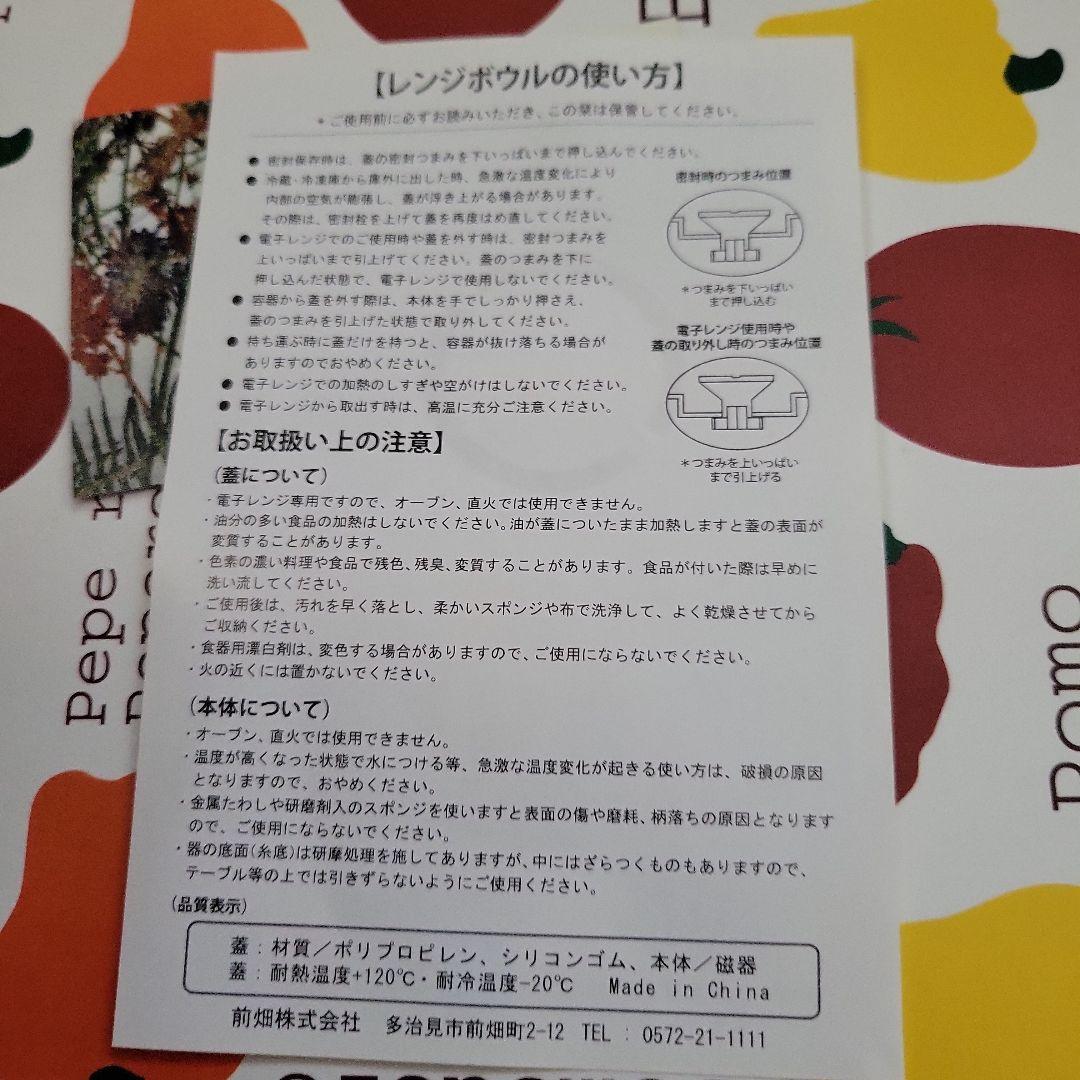 【レンジボウルの使い方】
*ご使用前に必ずお読みいただき、この栞は保管してください。
● 密封保存時は、蓋の密封つまみを下いっぱいまで押し込んでください。
● 冷蔵・冷凍庫から庫外に出した時、急激な温度変化により
内部の空気が膨張し、蓋が浮き上がる場合があります。
その際は、密封栓を上げて蓋を再度はめ直してください。
● 電子レンジでのご使用時や蓋を外す時は、密封つまみを
上いっぱいまで引上げてください。蓋のつまみを下に
押し込んだ状態で、電子レンジで使用しないでください。
● 容器から蓋を外す際は、本体を手でしっかり押さえ、
蓋のつまみを引上げた状態で取り外してください。
● 持ち運ぶ時に蓋だけを持つと、容器が抜け落ちる場合が
ありますのでおやめください。
● 電子レンジでの加熱のしすぎや空がけはしないでください。
● 電子レンジから取出す時は、高温に充分ご注意ください。
密封時のつまみ位置
*つまみを下いっぱい
まで押し込む
電子レンジ使用時や
蓋の取り外し時のつまみ位置
*つまみを上いっぱい
まで引上げる
【お取扱い上の注意】
(蓋について)
・電子レンジ専用ですので、オーブン、直火では使用できません。
・油分の多い食品の加熱はしないでください。油が蓋についたまま加熱しますと蓋の表面が
変質することがあります。
・色素の濃い料理や食品で残色、残臭、変質することがあります。食品が付いた際は早めに
洗い流してください。
・ご使用後は、汚れを早く落とし、柔かいスポンジや布で洗浄して、よく乾燥させてから
ご収納ください。
・食器用漂白剤は、変色する場合がありますので、ご使用にならないでください。
・火の近くには置かないでください。
(本体について)
・オーブン、直火では使用できません。
・温度が高くなった状態で水につける等、急激な温度変化が起きる使い方は、破損の原因
となりますので、おやめください。
・金属たわしや研磨剤入のスポンジを使いますと表面の傷や磨耗、柄落ちの原因となります
ので、ご使用にならないでください。
・器の底面(糸底)は研摩処理を施してありますが、中にはざらつくものもありますので、
テーブル等の上では引きずらないようにご使用ください。
(品質表示)
蓋:材質/ポリプロピレン、シリコンゴム、本体/磁器
蓋:耐熱温度+120℃・耐冷温度-20℃ Made in China
前畑株式会社 多治見市前畑町2-12 TEL : 0572-21-1111
Pepe
Pomo